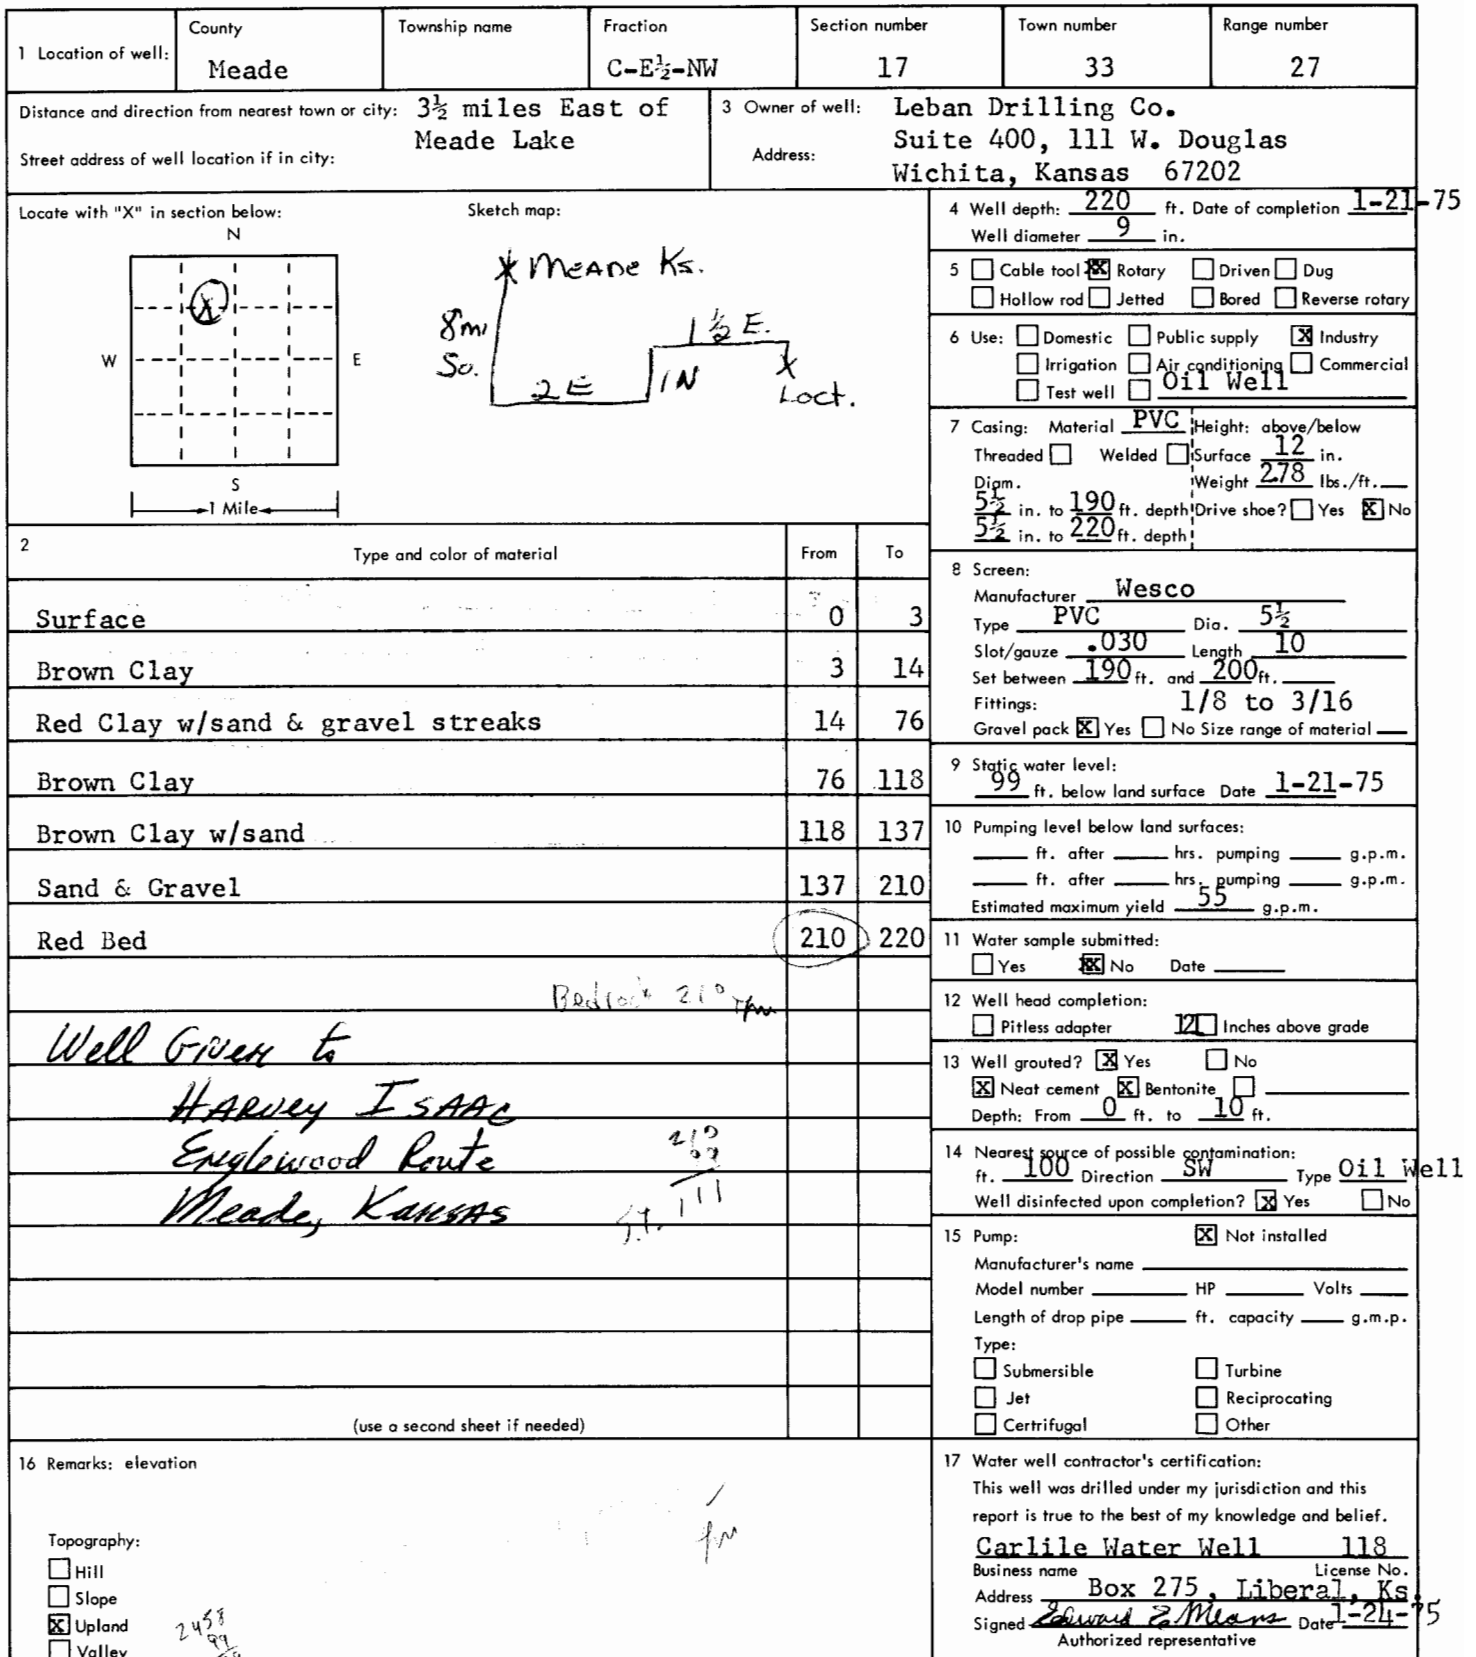 County Township name Fraction Section number Town number Range number
1 Location of well: Meade C-E½-NW 17 33 27
Distance and direction from nearest town or city: 3½ miles East of
Meade Lake
Street address of well location if in city:
3 Owner of well: Leban Drilling Co.
Address: Suite 400, 111 W. Douglas
Wichita, Kansas 67202
Locate with "X" in section below:
N
W E
S
1 Mile
X
Sketch map:
X Meade Ks.
8 mi
So.
2 E
1 N
1 ½ E.
X
Loct.
2 Type and color of material From To
Surface 0 3
Brown Clay 3 14
Red Clay w/sand & gravel streaks 14 76
Brown Clay 76 118
Brown Clay w/sand 118 137
Sand & Gravel 137 210
Red Bed 210 220
Bedrock 210
Well Given to
Harvey Isaac
Englewood Route
Meade, Kansas
210
99
111
(use a second sheet if needed)
4 Well depth: 220 ft. Date of completion 1-21-75
Well diameter 9 in.
5 ☐ Cable tool ☒ Rotary ☐ Driven ☐ Dug
☐ Hollow rod ☐ Jetted ☐ Bored ☐ Reverse rotary
6 Use: ☐ Domestic ☐ Public supply ☒ Industry
☐ Irrigation ☐ Air conditioning ☐ Commercial
☐ Test well ☐ Oil Well
7 Casing: Material PVC Height: above/below
Threaded ☐ Welded ☐ Surface 12 in.
Diam. Weight 2.78 lbs./ft.
5½ in. to 190 ft. depth Drive shoe? ☐ Yes ☒ No
5½ in. to 220 ft. depth
8 Screen:
Manufacturer Wesco
Type PVC Dia. 5½
Slot/gauze .030 Length 10
Set between 190 ft. and 200 ft.
Fittings: 1/8 to 3/16
Gravel pack ☒ Yes ☐ No Size range of material
9 Static water level:
99 ft. below land surface Date 1-21-75
10 Pumping level below land surfaces:
ft. after hrs. pumping g.p.m.
ft. after hrs. pumping g.p.m.
Estimated maximum yield 55 g.p.m.
11 Water sample submitted:
☐ Yes ☒ No Date
12 Well head completion:
☐ Pitless adapter 12 ☐ Inches above grade
13 Well grouted? ☒ Yes ☐ No
☒ Neat cement ☒ Bentonite ☐
Depth: From 0 ft. to 10 ft.
14 Nearest source of possible contamination:
ft. 100 Direction SW Type Oil Well
Well disinfected upon completion? ☒ Yes ☐ No
15 Pump: ☒ Not installed
Manufacturer's name
Model number HP Volts
Length of drop pipe ft. capacity g.m.p.
Type:
☐ Submersible ☐ Turbine
☐ Jet ☐ Reciprocating
☐ Certrifugal ☐ Other
16 Remarks: elevation
Topography:
☐ Hill
☐ Slope
☒ Upland
☐ Valley
2458
99
17 Water well contractor's certification:
This well was drilled under my jurisdiction and this
report is true to the best of my knowledge and belief.
Carlile Water Well 118
Business name License No.
Address Box 275, Liberal, Ks.
Signed Edward E Means Date 1-24-75
Authorized representative